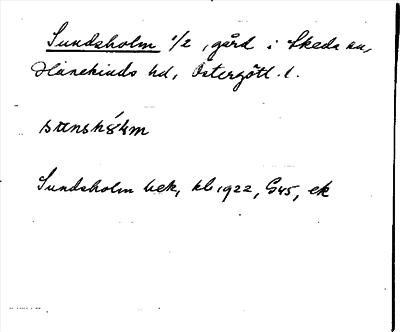 Sundsholm 1/2, gård i Skeda sn,
Hanekinds hd, Östergötl. l.
Sundsholm bek, kb 1922, G45, ek